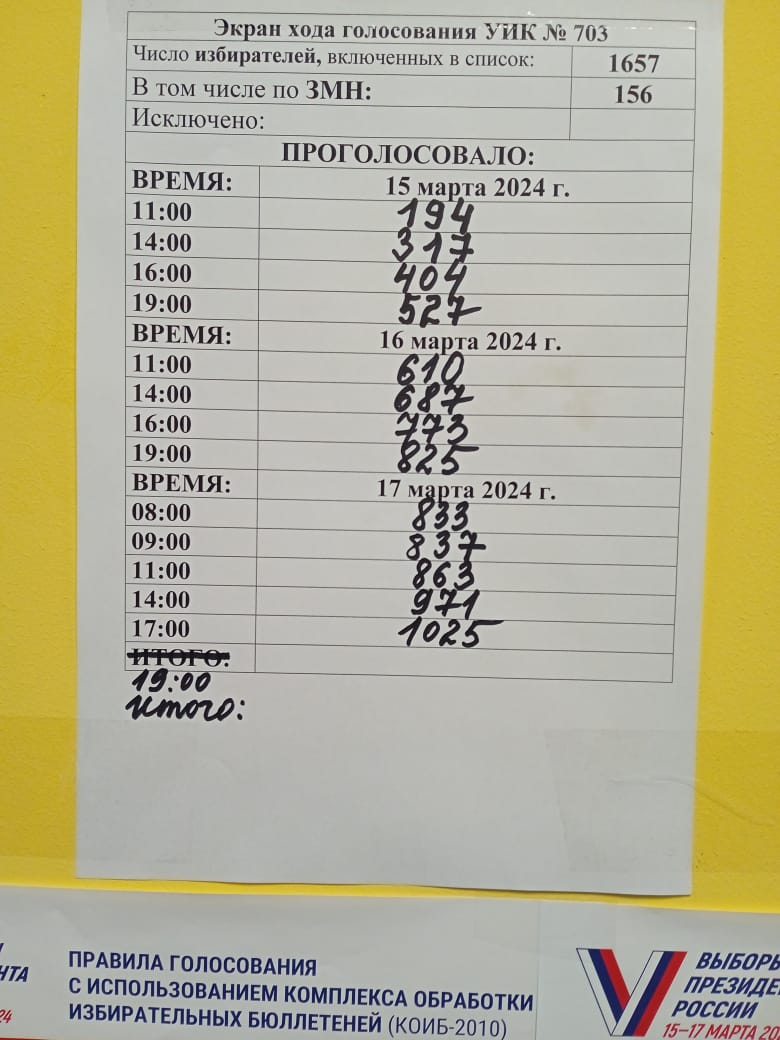 Экран хода голосования УИК № 703
Число избирателей, включенных в список: 1657
В том числе по ЗМН: 156
Исключено:
ПРОГОЛОСОВАЛО:
ВРЕМЯ: 15 марта 2024 г.
11:00 194
14:00 317
16:00 404
19:00 527
ВРЕМЯ: 16 марта 2024 г.
11:00 610
14:00 687
16:00 773
19:00 825
ВРЕМЯ: 17 марта 2024 г.
08:00 833
09:00 837
11:00 863
14:00 971
17:00 1025
ИТОГО:
19:00
итого:
НТА
24
ПРАВИЛА ГОЛОСОВАНИЯ
С ИСПОЛЬЗОВАНИЕМ КОМПЛЕКСА ОБРАБОТКИ
ИЗБИРАТЕЛЬНЫХ БЮЛЛЕТЕНЕЙ (КОИБ-2010)
ВЫБОРЫ
ПРЕЗИДЕ
РОССИИ
15–17 МАРТА 20